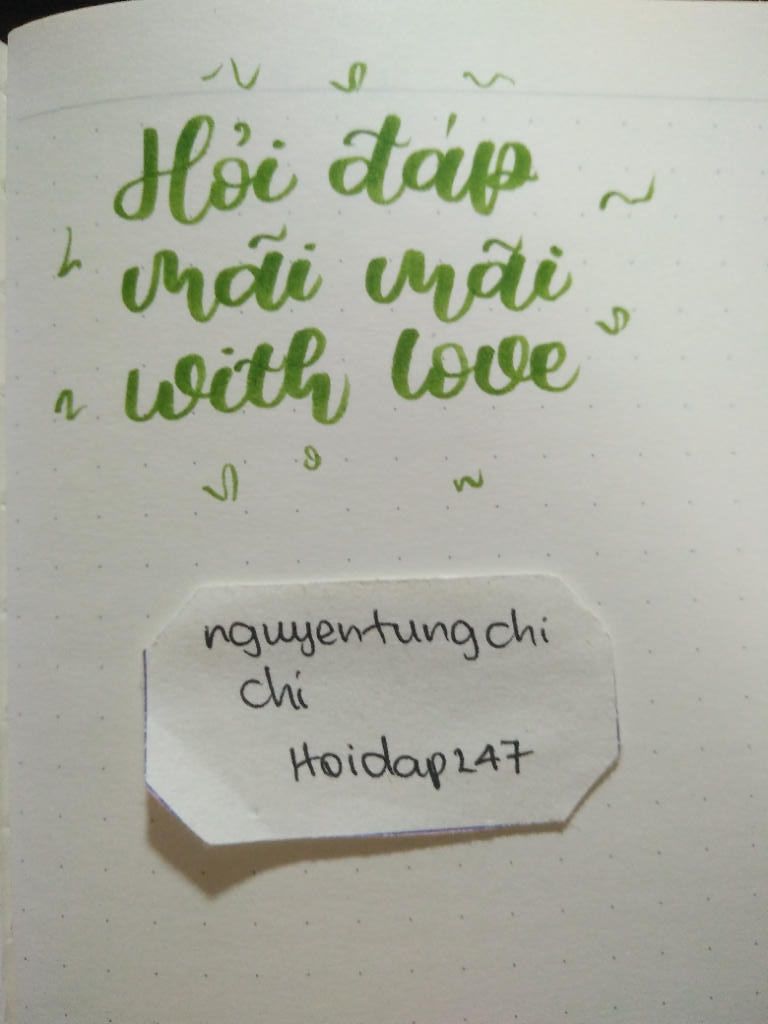 Hỏi đáp
mãi mãi
with love
nguyentungchi
chi
Hoidap247